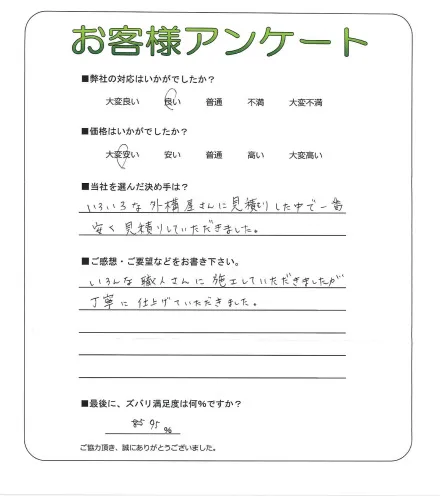 お客様アンケート
■弊社の対応はいかがでしたか?
大変良い 良い 普通 不満 大変不満
■価格はいかがでしたか?
大変安い 安い 普通 高い 大変高い
■当社を選んだ決め手は?
いろいろな外構屋さんに見積りした中で一番
安く見積りしていただきました。
■ご感想・ご要望などをお書き下さい。
いろんな職人さんに施工していただきましたが
丁寧に仕上げていただきました。
■最後に、ズバリ満足度は何%ですか?
95 %
ご協力頂き、誠にありがとうございました。